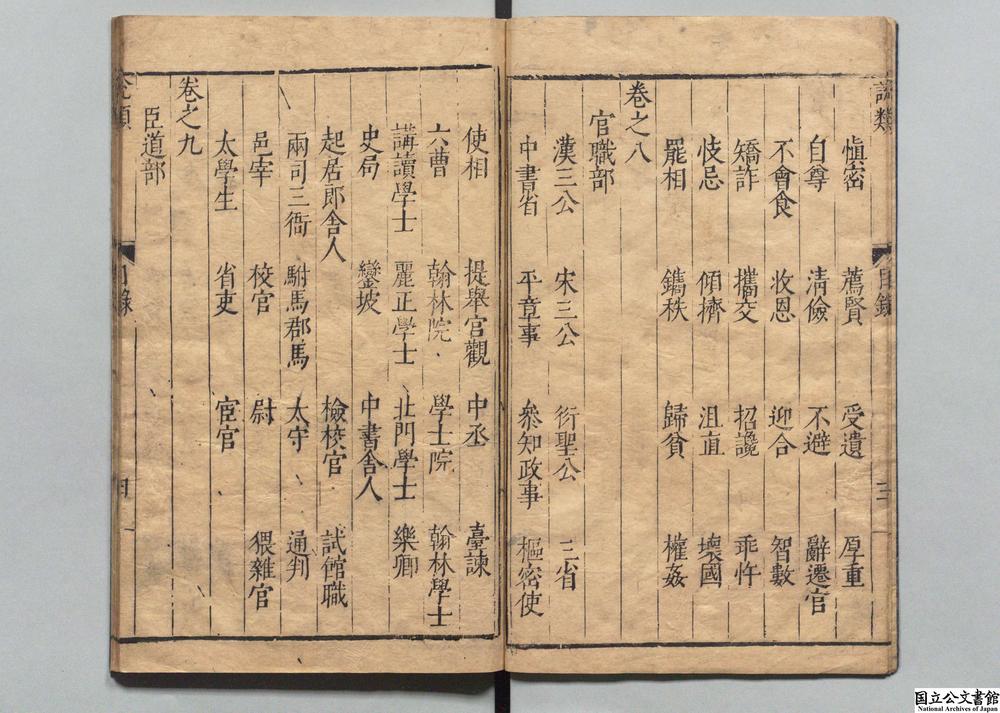 說類 目錄 三
愼密 薦賢 受遺 厚重
自尊 淸儉 不避 辭遷官
不會食 收恩 迎合 智數
矯詐 攜交 招讒 乖忤
忮忌 傾擠 沮直 壞國
罷相 鐫秩 歸貧 權姦
卷之八
官職部
漢三公 宋三公 衍聖公 三省
中書省 平章事 參知政事 樞密使
使相 提舉官觀 中丞 臺諫
六曹 翰林院 學士院 翰林學士
講讀學士 麗正學士 北門學士 樂卿
史局 鑾坡 中書舍人
起居郎舍人 檢校官 試館職
兩司三衙 駙馬郡馬 太守 通判
邑宰 校官 尉 猥雜官
太學生 省吏 宦官
卷之九
臣道部
目錄 四
国立公文書館
National Archives of Japan